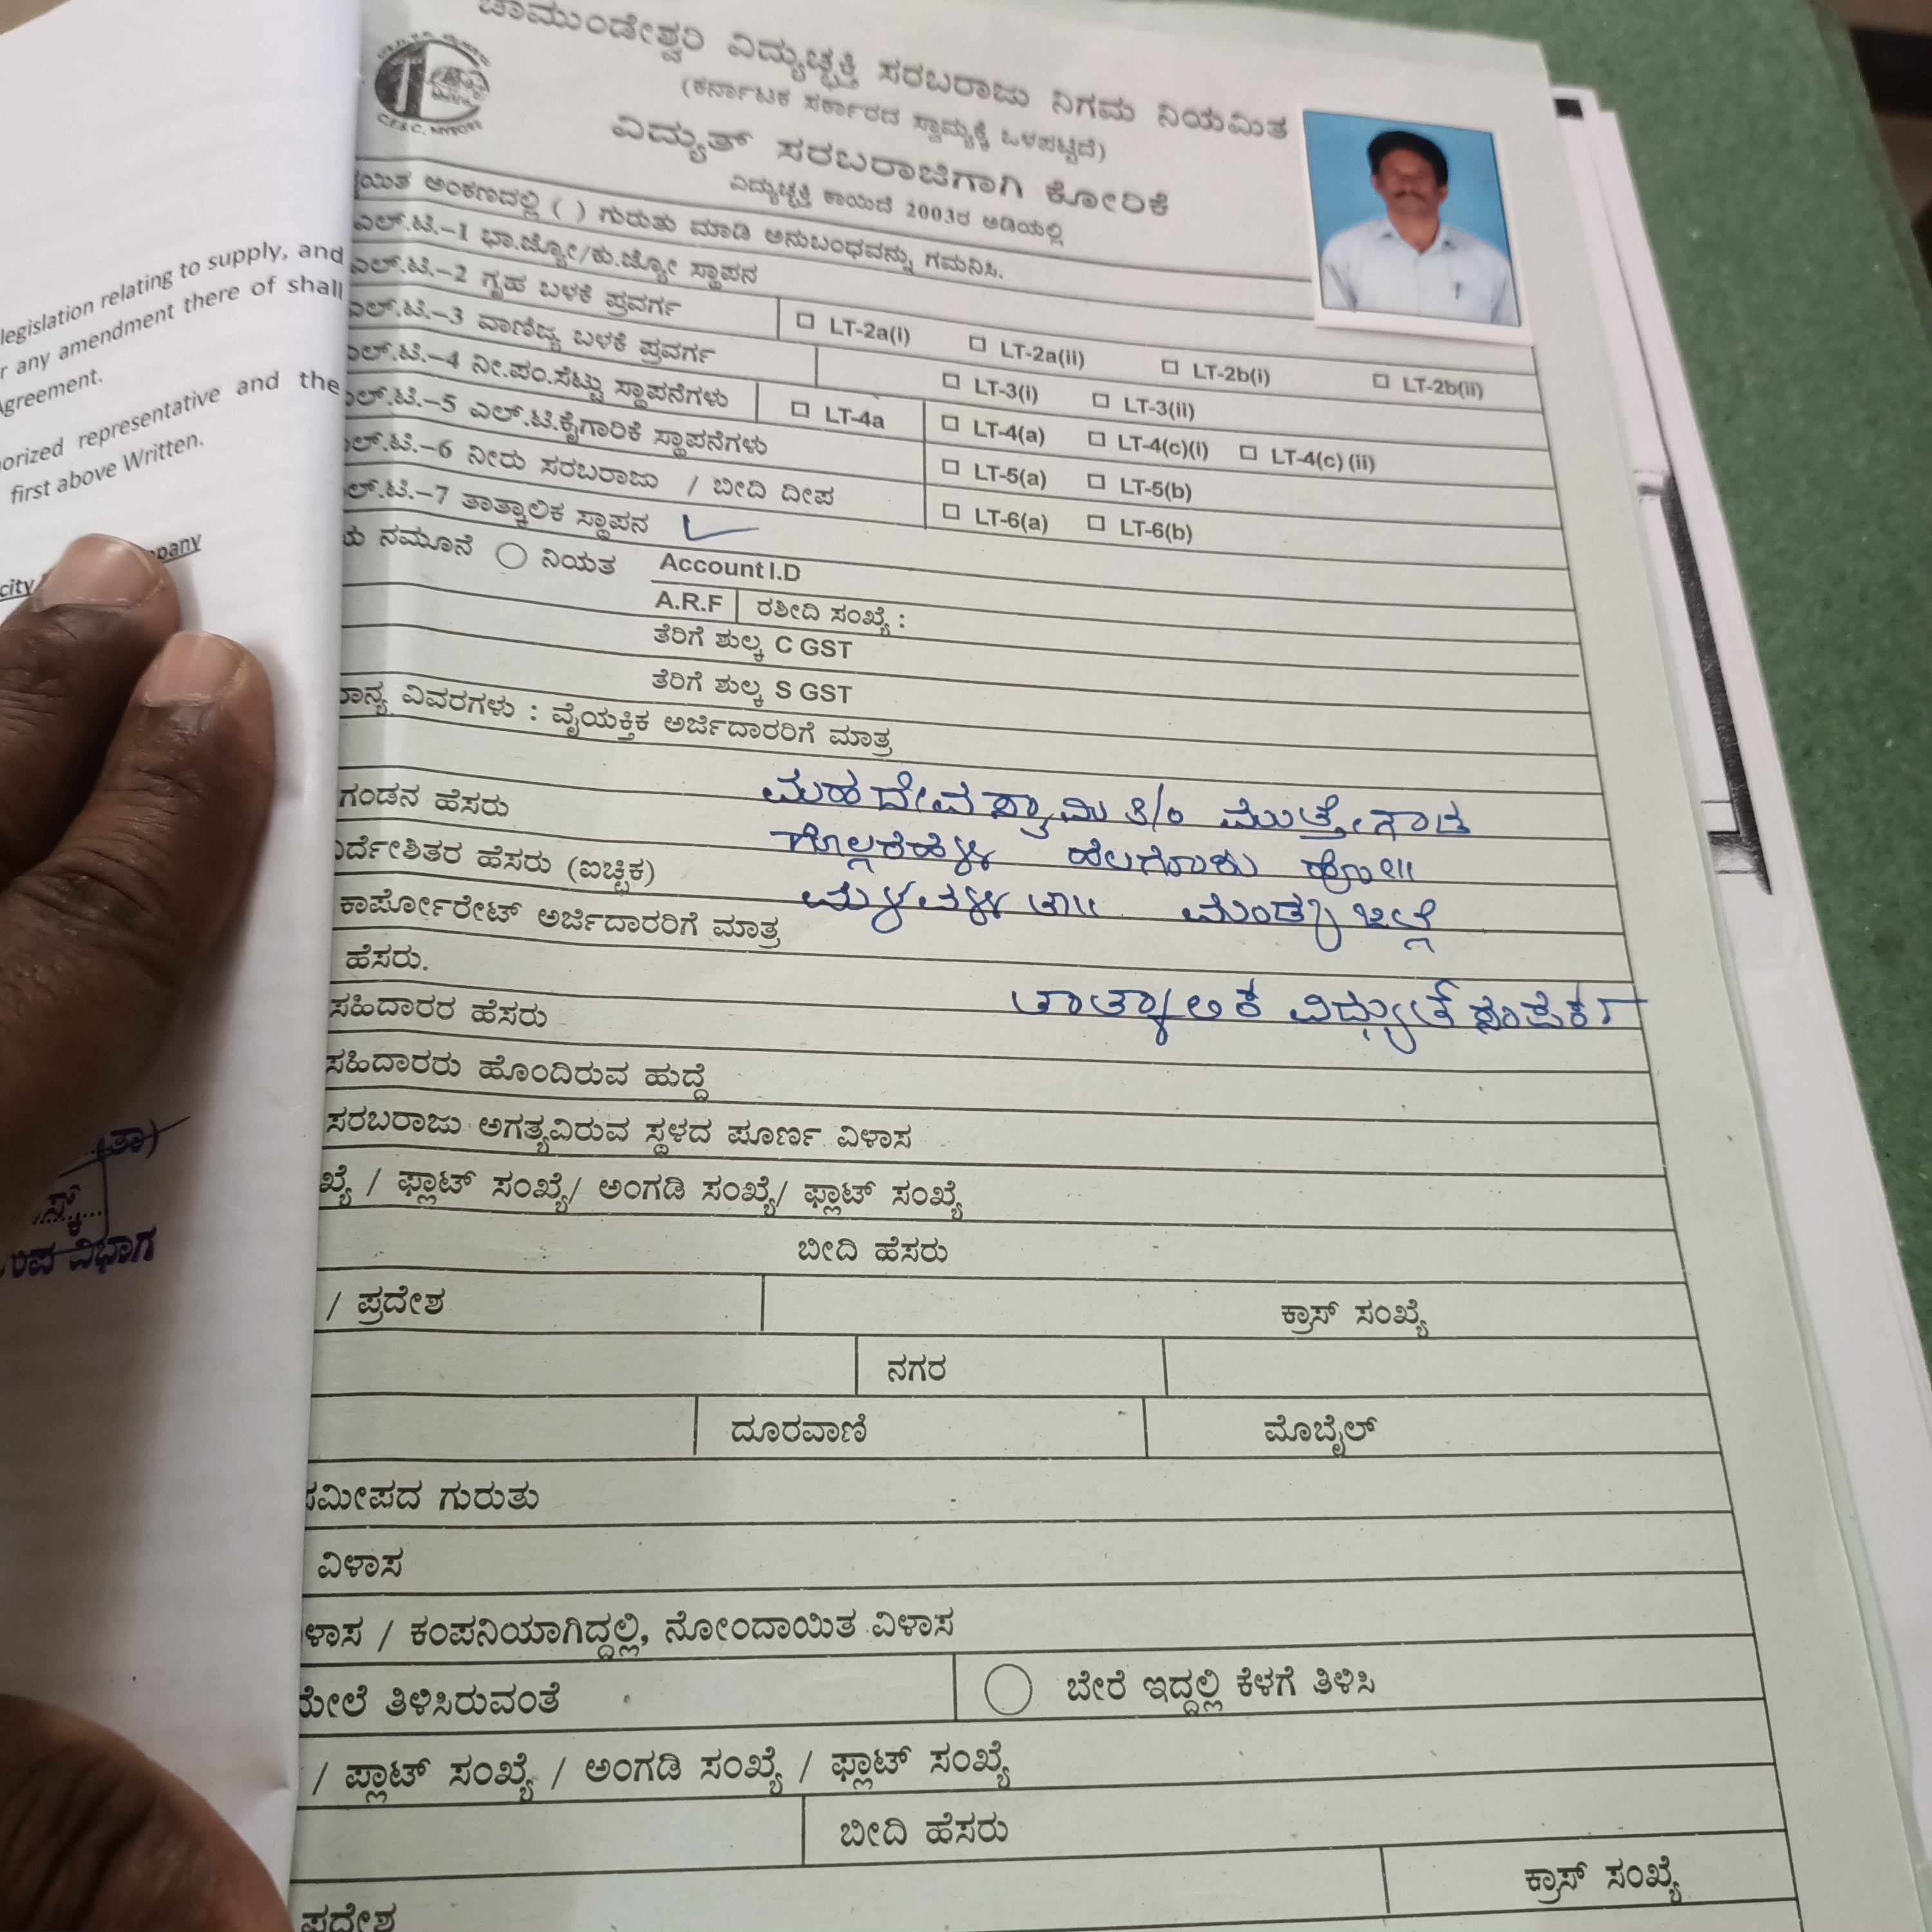 ಚಾಮುಂಡೇಶ್ವರಿ ವಿದ್ಯುಚ್ಛಕ್ತಿ ಸರಬರಾಜು ನಿಗಮ ನಿಯಮಿತ
(ಕರ್ನಾಟಕ ಸರ್ಕಾರದ ಸ್ವಾಮ್ಯಕ್ಕೆ ಒಳಪಟ್ಟಿದೆ)
ವಿದ್ಯುತ್ ಸರಬರಾಜಿಗಾಗಿ ಕೋರಿಕೆ
ವಿದ್ಯುಚ್ಛಕ್ತಿ ಕಾಯಿದೆ 2003ರ ಅಡಿಯಲ್ಲಿ
ಅಂಕಣದಲ್ಲಿ ( ) ಗುರುತು ಮಾಡಿ ಅನುಬಂಧವನ್ನು ಗಮನಿಸಿ.
ಎಲ್.ಟಿ.-1 ಭಾ.ಜ್ಯೋ/ಕು.ಜ್ಯೋ ಸ್ಥಾಪನ
ಎಲ್.ಟಿ.-2 ಗೃಹ ಬಳಕೆ ಪ್ರವರ್ಗ LT-2a(i) LT-2a(ii) LT-2b(i) LT-2b(ii)
ಎಲ್.ಟಿ.-3 ವಾಣಿಜ್ಯ ಬಳಕೆ ಪ್ರವರ್ಗ LT-3(i) LT-3(ii)
ಎಲ್.ಟಿ.-4 ನೀ.ಪಂ.ಸೆಟ್ಟು ಸ್ಥಾಪನೆಗಳು LT-4a LT-4(a) LT-4(c)(i) LT-4(c) (ii)
ಎಲ್.ಟಿ.-5 ಎಲ್.ಟಿ.ಕೈಗಾರಿಕೆ ಸ್ಥಾಪನೆಗಳು LT-5(a) LT-5(b)
ಎಲ್.ಟಿ.-6 ನೀರು ಸರಬರಾಜು / ಬೀದಿ ದೀಪ LT-6(a) LT-6(b)
ಎಲ್.ಟಿ.-7 ತಾತ್ಕಾಲಿಕ ಸ್ಥಾಪನ
ನಮೂನೆ ನಿಯತ Account I.D
A.R.F ರಶೀದಿ ಸಂಖ್ಯೆ :
ತೆರಿಗೆ ಶುಲ್ಕ C GST
ತೆರಿಗೆ ಶುಲ್ಕ S GST
ವಿವರಗಳು : ವೈಯಕ್ತಿಕ ಅರ್ಜಿದಾರರಿಗೆ ಮಾತ್ರ
ಗಂಡನ ಹೆಸರು ಮಹದೇವಸ್ವಾಮಿ
ಹೆಸರು (ಐಚ್ಛಿಕ)
ಕಾರ್ಪೋರೇಟ್ ಅರ್ಜಿದಾರರಿಗೆ ಮಾತ್ರ ಮಳವಳ್ಳಿ ತಾ|| ಮಂಡ್ಯ ಜಿಲ್ಲೆ
ಹೆಸರು.
ಸಹಿದಾರರ ಹೆಸರು ತಾತ್ಕಾಲಿಕ ವಿದ್ಯುತ್ ಸಂಪರ್ಕ
ಸಹಿದಾರರು ಹೊಂದಿರುವ ಹುದ್ದೆ
ಸರಬರಾಜು ಅಗತ್ಯವಿರುವ ಸ್ಥಳದ ಪೂರ್ಣ ವಿಳಾಸ
/ ಫ್ಲಾಟ್ ಸಂಖ್ಯೆ/ ಅಂಗಡಿ ಸಂಖ್ಯೆ/ ಫ್ಲಾಟ್ ಸಂಖ್ಯೆ
ಬೀದಿ ಹೆಸರು
/ ಪ್ರದೇಶ ಕ್ರಾಸ್ ಸಂಖ್ಯೆ
ನಗರ
ದೂರವಾಣಿ ಮೊಬೈಲ್
ಸಮೀಪದ ಗುರುತು
ವಿಳಾಸ
/ ಕಂಪನಿಯಾಗಿದ್ದಲ್ಲಿ, ನೋಂದಾಯಿತ ವಿಳಾಸ
ಮೇಲೆ ತಿಳಿಸಿರುವಂತೆ ಬೇರೆ ಇದ್ದಲ್ಲಿ ಕೆಳಗೆ ತಿಳಿಸಿ
/ ಪ್ಲಾಟ್ ಸಂಖ್ಯೆ / ಅಂಗಡಿ ಸಂಖ್ಯೆ / ಫ್ಲಾಟ್ ಸಂಖ್ಯೆ
ಬೀದಿ ಹೆಸರು
ಪ್ರದೇಶ ಕ್ರಾಸ್ ಸಂಖ್ಯೆ
legislation relating to supply, and
any amendment there of shall
Agreement.
representative and the
first above Written.
ವಿಭಾಗ